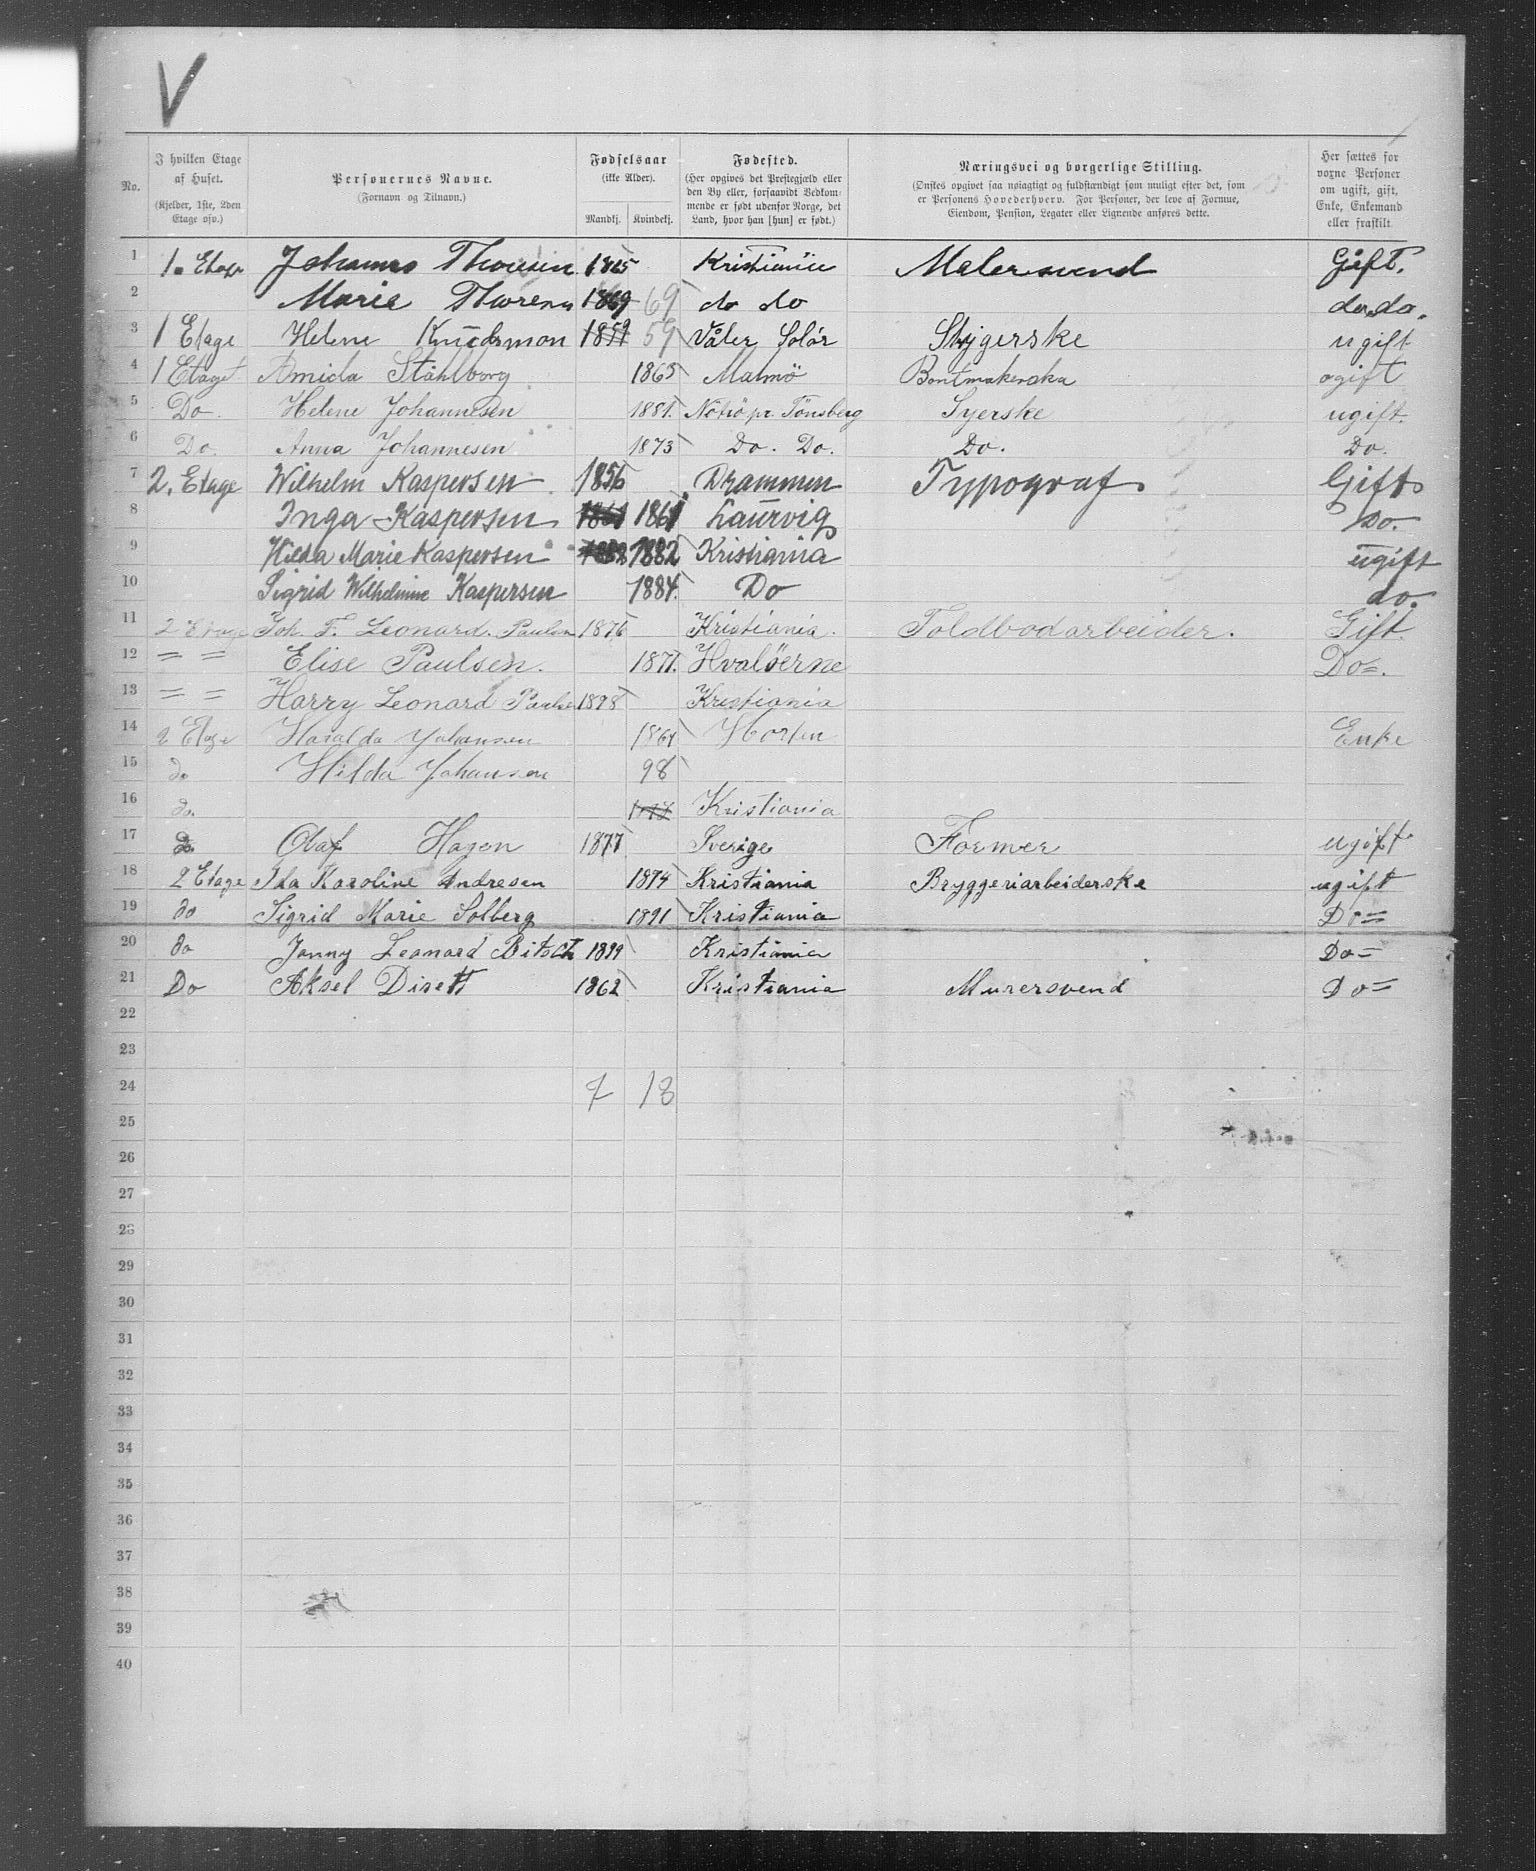 V
No.
I hvilken Etage af Huset. (Kjelder, 1ste, 2den Etage osv.)
Personernes Navne. (Fornavn og Tilnavn.)
Fødselsaar (ikke Alder). Mandkj. Kvindekj.
Fødested. (Her opgives det Prestegjæld eller den By eller, forsaavidt Vedkommende er født udenfor Norge, det Land, hvor han [hun] er født.)
Næringsvei og borgerlige Stilling. (Ønskes opgivet saa nøiagtigt og fuldstændigt som muligt efter det, som er Personens Hovederhverv. For Personer, der leve af Formue, Eiendom, Pension, Legater eller Lignende anføres dette.
Her sættes for voxne Personer om ugift, gift, Enke, Enkemand eller fraskilt
1 1. Etage Johannes Thoresen 1865 Kristiania Malersvend Gift.
2 Marie Thoresen 1869 69 do do do do.
3 1 Etage Helene Knudsmon 1859 59 Våler Solør Strygerske ugift
4 1 Etage Amida Ståhlborg 1865 Malmö Bontmakerska ogift
5 Do. Helene Johannesen 1881. Nøtrø pr. Tönsberg Syerske ugift.
6 Do. Anna Johannesen 1873 Do. Do. Do. Do.
7 2. Etage Wilhelm Kaspersen 1856 Drammen Typograf Gift
8 Inga Kaspersen 1861 1861 Laurvig Do.
9 Hilda Marie Kaspersen 1882 1882 Kristiania ugift
10 Sigrid Wilhelmine Kaspersen 1884. Do do.
11 2 Etage Joh. F. Leonard. Paulsen 1876 Kristiania. Toldbodarbeider. Gift.
12 = = Elise Paulsen. 1877. Hvaløerne Do=.
13 = = Harry Leonard Paulse 1898 Kristiania
14 2 Etage Haralda Johansen 1864 Horten Enke
15 do Hilda Johansen 98
16 do. Kristiania
17 do Olaf Hagen 1877 Sverige Former ugift
18 2 Etage Ida Karoline Andresen 1874 Kristiania Bryggeriarbeiderske ugift
19 do Sigrid Marie Solberg 1891. Kristiania Do=
20 do Jonny Leonard Bitsch 1899 Kristiania Do=
21 Do Aksel Disett 1862 Kristiania Murersvend Do=
22
23
24 7 18
25
26
27
28
29
30
31
32
33
34
35
36
37
38
39
40